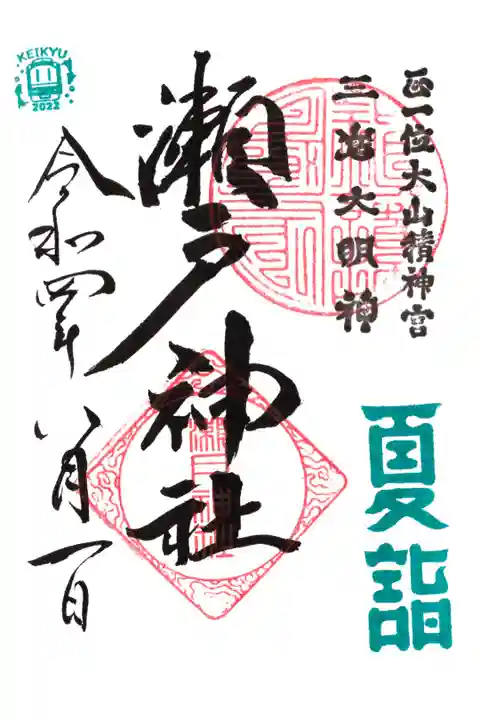 正一位大山積神宮
三島大明神
夏詣
瀬戸神社
令和四年八月一日
KEIKYU
2022